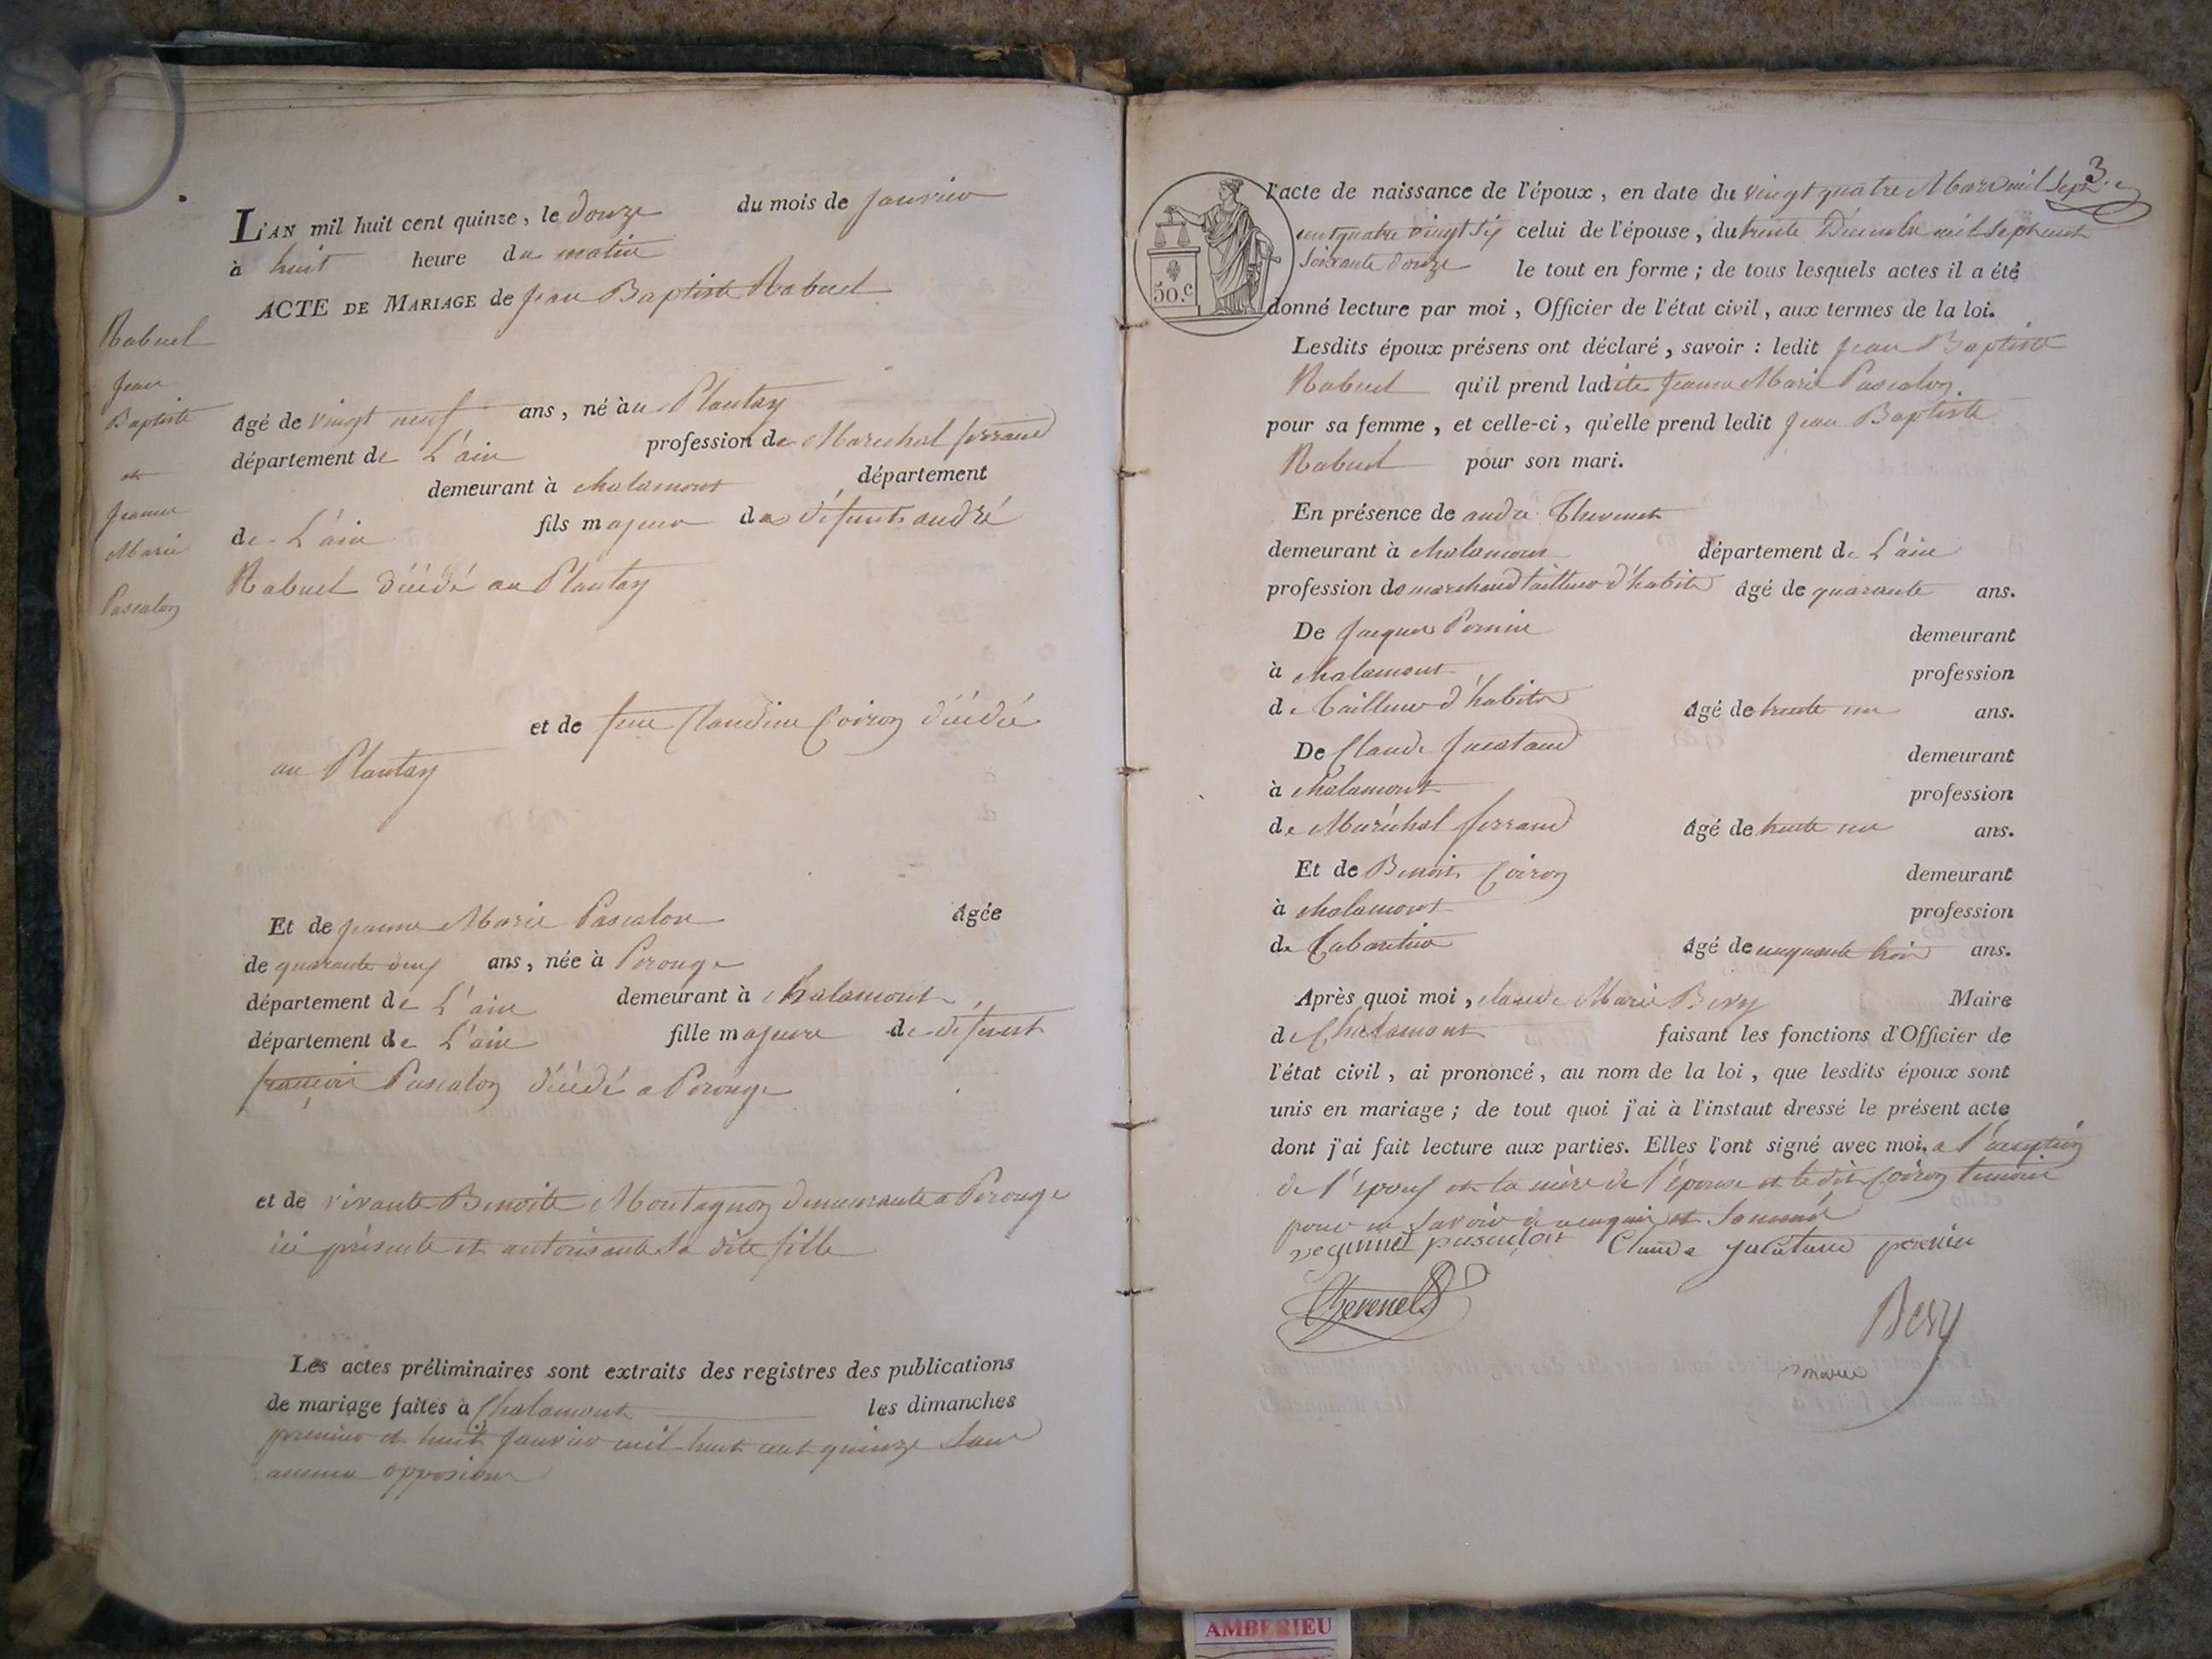 L'AN mil huit cent quinze, le douze du mois de Janvier
à huit heure du matin
ACTE DE MARIAGE de Jean Baptiste Rabuel
Rabuel
Jean
Baptiste
et
Jeanne
Marie
Pascalon
Agé de vingt neuf ans, né au Plantay
département de L'ain profession de Marechal ferrand
demeurant à chalamont département
de L'ain fils majeur de défunts andré
Rabuel décédé au Plantay
et de feue Claudine Coiron décédée
au Plantay
Et de jeanne Marie Pascalon Agée
de quarante deux ans, née à Perouge
département de L'ain demeurant à chalamont
département de L'ain fille majeure de défunt
françois Pascalon décédé a Perouge
et de vivante Benoite Montagnon demeurante a Perouge
ici présente et autorisante sa dite fille
Les actes préliminaires sont extraits des registres des publications
de mariage faites à Chalamont les dimanches
premier et huit Janvier mil huit cent quinze sans
aucune opposition
3
l'acte de naissance de l'époux, en date du vingt quatre Mars mil sept
cent quatre vingt six celui de l'épouse, du trente Décembre mil sept cent
soixante douze le tout en forme; de tous lesquels actes il a été
50.c
donné lecture par moi, Officier de l'état civil, aux termes de la loi.
Lesdits époux présens ont déclaré, savoir: ledit Jean Baptiste
Rabuel qu'il prend ladite Jeanne Marie Pascalon
pour sa femme, et celle-ci, qu'elle prend ledit Jean Baptiste
Rabuel pour son mari.
En présence de andré Thevenet
demeurant à chalamont département de L'ain
profession de marchand tailleur d'habits Agé de quarante ans.
De Jacques Pernin demeurant
à chalamont profession
de Tailleur d'habits Agé de trente un ans.
De Claude Jacataud demeurant
à chalamont profession
de Maréchal ferrand Agé de trente un ans.
Et de Benoit Coiron demeurant
à chalamont profession
de Cabaretier Agé de cinquante trois ans.
Après quoi moi, claude Marie Bery Maire
de Chalamont faisant les fonctions d'Officier de
l'état civil, ai prononcé, au nom de la loi, que lesdits époux sont
unis en mariage; de tout quoi j'ai à l'instaut dressé le présent acte
dont j'ai fait lecture aux parties. Elles l'ont signé avec moi, a l'exception
de l'époux et la mère de l'épouse et le dit Coiron temoin
pour ne savoir de ce enquis et sommé
pascalon Claude jacataud pernin
Thevenet
Bery
maire
AMBERIEU